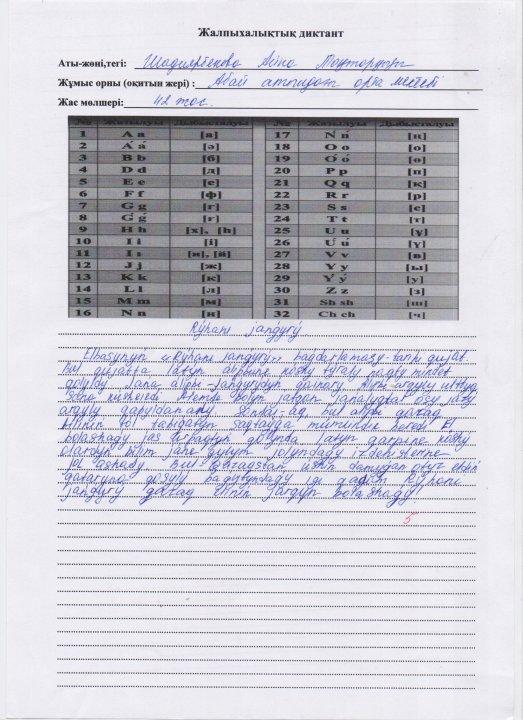 Жалпыхалықтық диктант
Аты-жөні,тегі: Шадиярбекова Айна
Жұмыс орны (оқитын жері) : Абай атындағы орта мектебі
Жас мөлшері: 42 жас.
№ Жазылуы Дыбысталуы № Жазылуы Дыбысталуы
1 A a [а] 17 Ń ń [ң]
2 Á á [ә] 18 O o [о]
3 B b [б] 19 Ó ó [ө]
4 D d [д] 20 P p [п]
5 E e [е] 21 Q q [қ]
6 F f [ф] 22 R r [р]
7 G g [г] 23 S s [с]
8 Ǵ ǵ [ғ] 24 T t [т]
9 H h [х], [һ] 25 U u [ұ]
10 I i [і] 26 Ú ú [ү]
11 I ı [и], [й] 27 V v [в]
12 J j [ж] 28 Y y [ы]
13 K k [к] 29 Ý ý [у]
14 L l [л] 30 Z z [з]
15 M m [м] 31 Sh sh [ш]
16 N n [н] 32 Ch ch [ч]
Rýhanı jańǵyrý
Elbasynyń «Rýhanı jańǵyrý» baǵdarlamasy-tarıhı qujat.
Bul qujatta latyn álipbıine kóshý týraly naqty mindet
qoıyldy Jańa álipbı-jańǵyrýdyń qaınary Álipbı arqyly ulttyq
sana kúsheıedi Álemde bolyp jatqan jańalyqtar osy jazý
arqyly qabyldanady Sondaı-aq bul álipbı qazaq
tiliniń tól tabıǵatyn saqtaýǵa múmkindik beredi El
bolashaǵy jas urpaqtyń qolynda latyn qarpine kóshý
olardyń bilim jáne ǵylym jolyndaǵy izdenisterine
jol ashady Bul Qazaqstan úshin damyǵan otyz eldiń
qataryna qosylý baǵytyndaǵy iri qadam Rýhanı
jańǵyrý qazaq eliniń jarqyn bolashaǵy
5